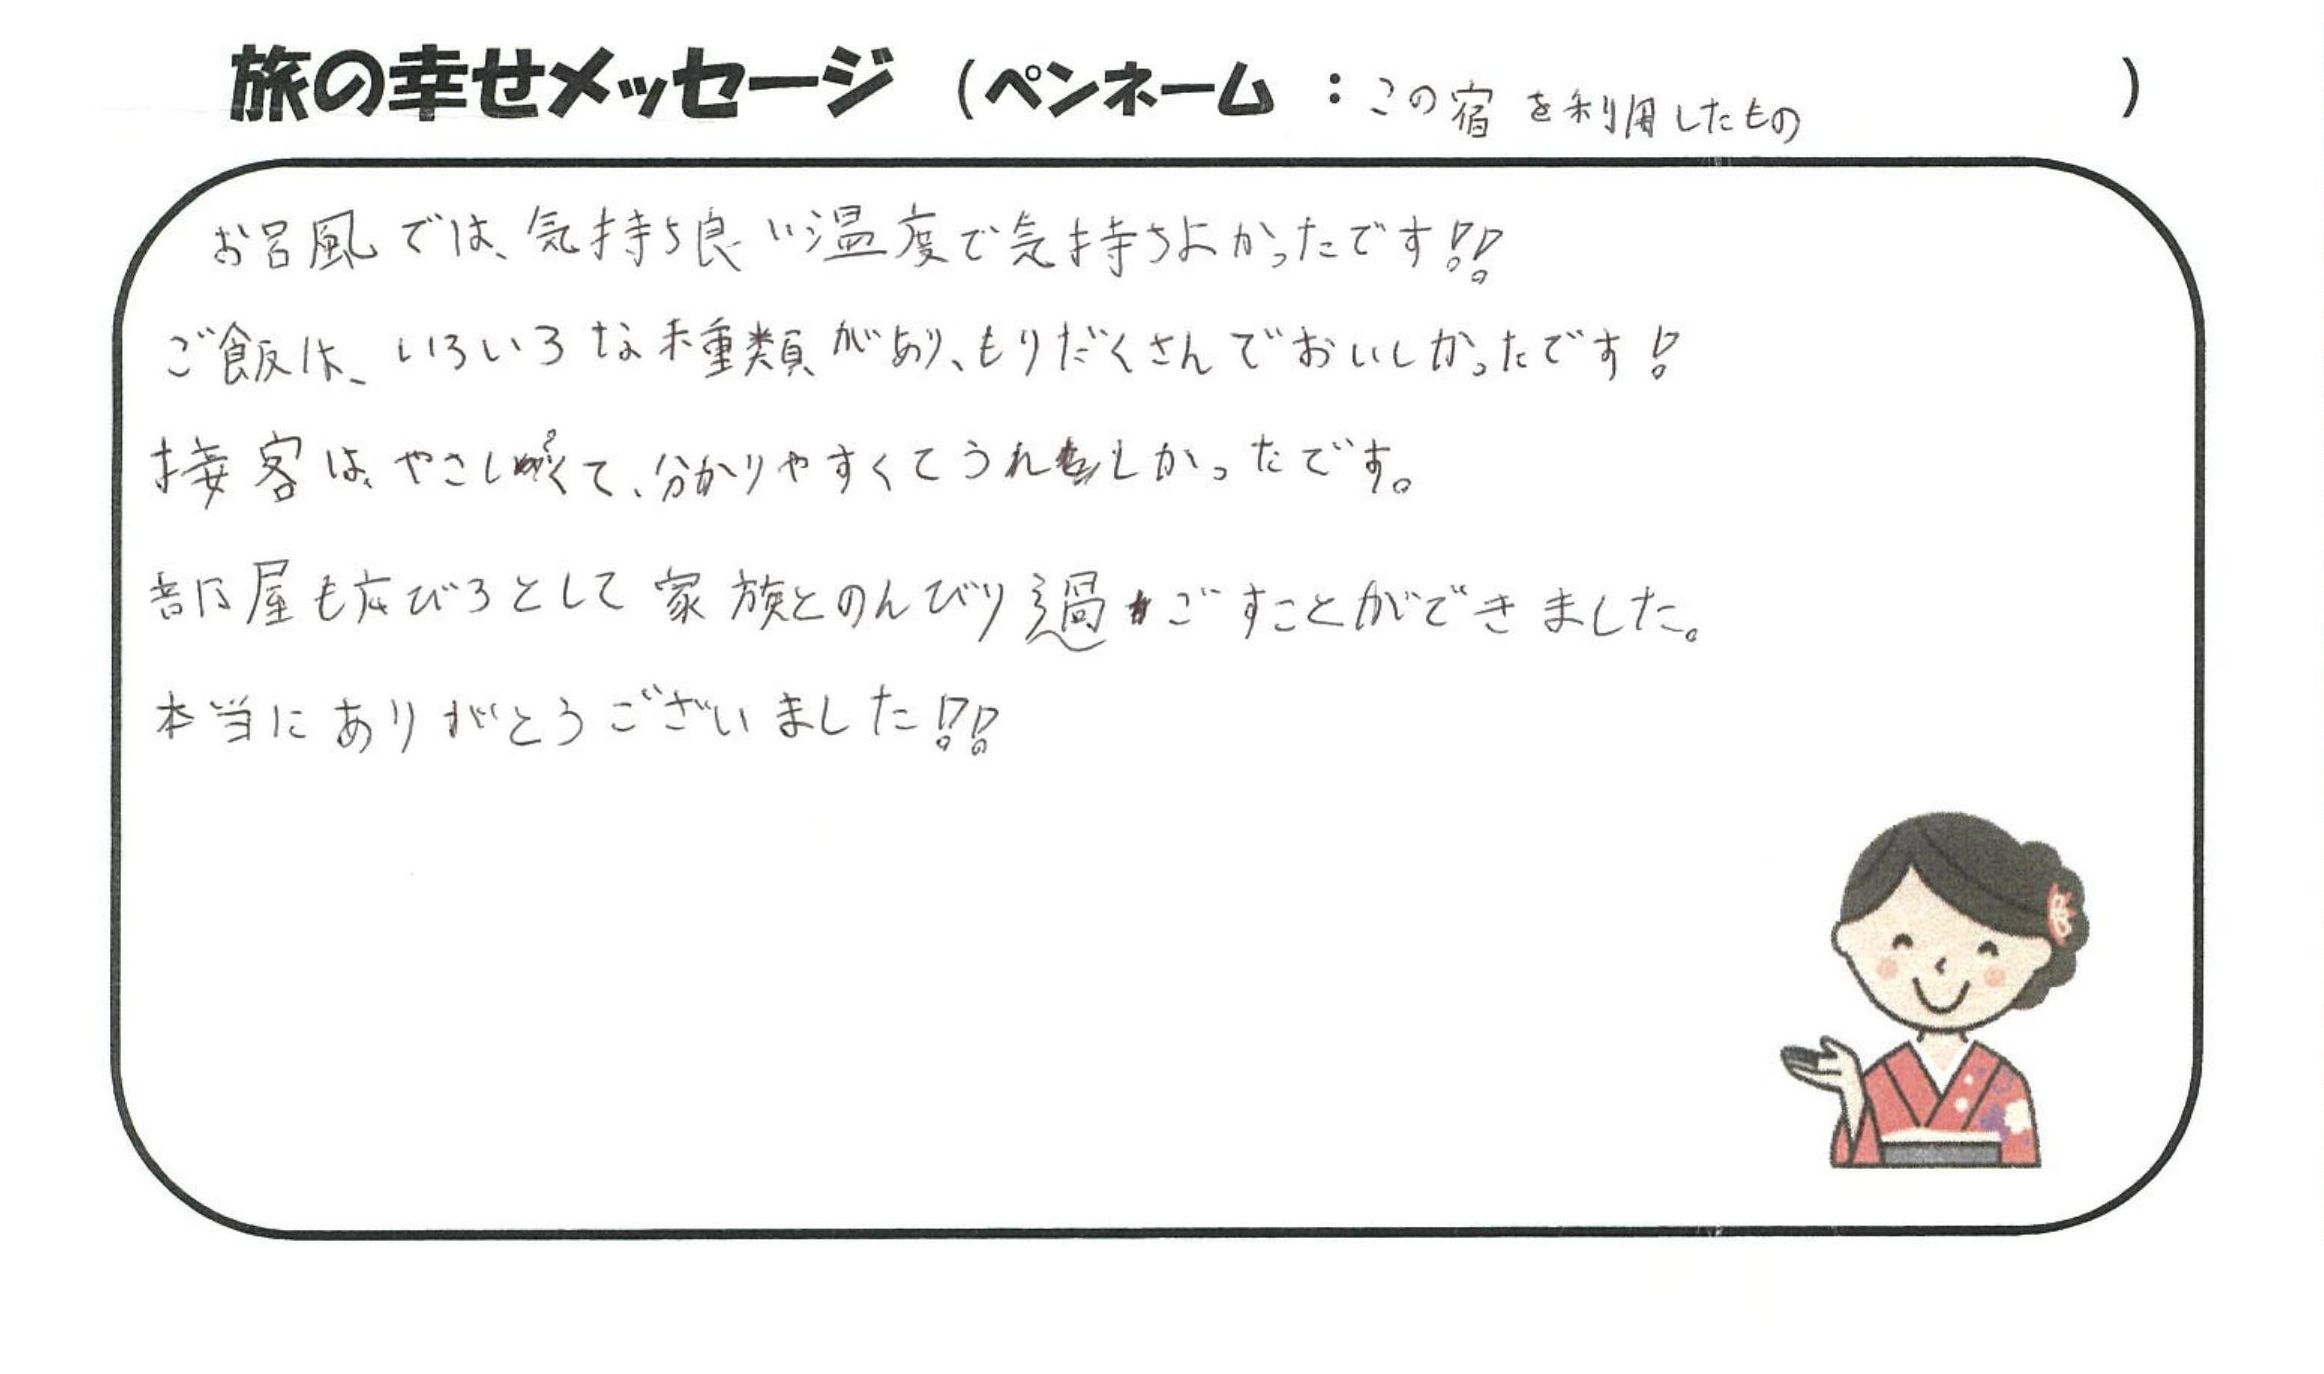 旅の幸せメッセージ (ペンネーム : この宿を利用したもの )
お呂風では、気持ち良い温度で気持ちよかったです!!
ご飯は、いろいろな種類があり、もりだくさんでおいしかったです!
接客は、やさしくて、分かりやすくてうれしかったです。
部屋も広びろとして家族とのんびり過ごすことができました。
本当にありがとうございました!!